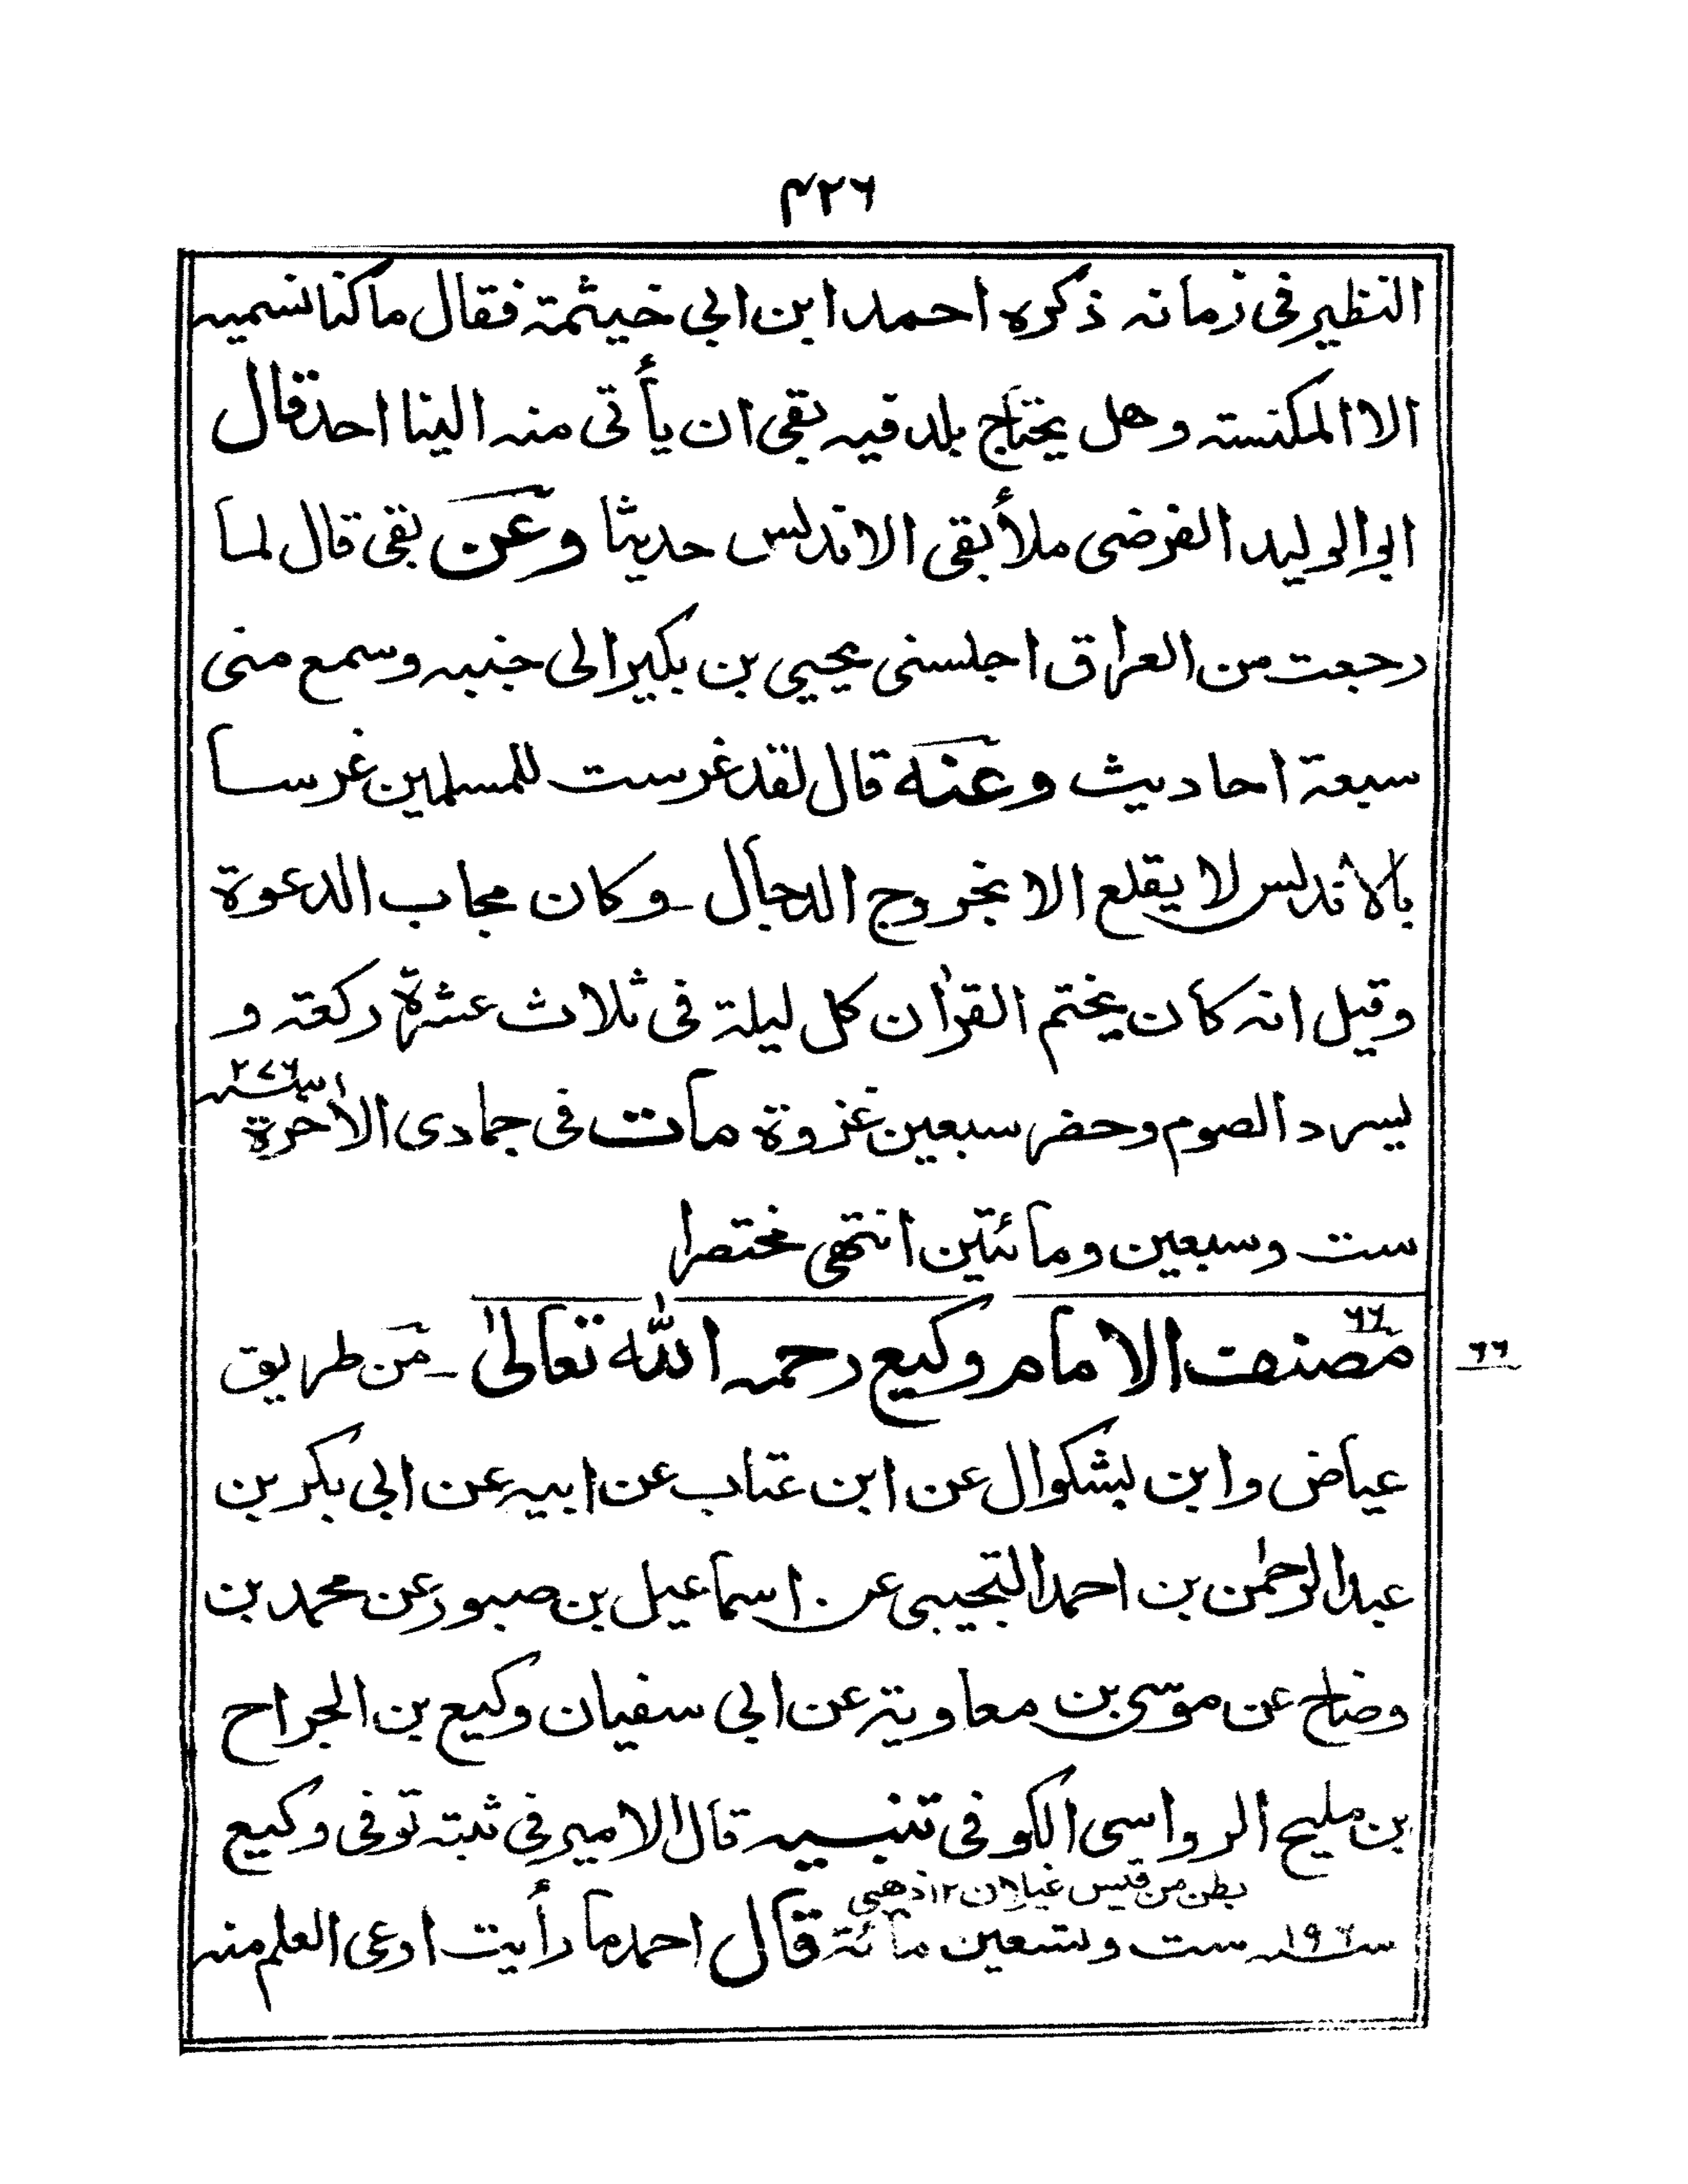 ٤٢٦
النظير في زمانه ذكره احمد ابن ابي خيثمة فقال ما كنا نسميه
الا المكنسته وهل يحتاج بلد فيه بقى ان يأتى منه الينا احد قال
ابو الوليد الفرضى ملأ بقى الاندلس حديثا وعن بقى قال لما
رجعت من العراق اجلسنى يحيى بن بكير الى جنبه وسمع منى
سبعة احاديث وعنه قال لقد غرست للمسلمين غرسا
بالاندلس لا يقلع الا بخروج الدجال - وكان مجاب الدعوة
وقيل انه كان يختم القرآن كل ليلة فى ثلاث عشرة ركعة و
يسرد الصوم وحضر سبعين غزوة مات فى جمادى الآخرة سنه ٢٧٦
ست وسبعين ومائتين انتهى مختصرا
٦٦
٦٦ مصنف الامام وكيع رحمه الله تعالىٰ - من طريق
عياض وابن بشكوال عن ابن عتاب عن ابيه عن ابى بكر بن
عبد الرحمٰن بن احمد التجيبى عن اسماعيل بن صبور عن محمد بن
وضاح عن موسى بن معاوية عن ابى سفيان وكيع بن الجراح
بن مليح الرواسى الكوفى تنبيه قال الامير فى ثبته توفى وكيع
بطن من قيس غيلان ١٢ ذهبى
سنه ١٩٦ ست وتسعين مائة قال احمد ما رأيت اوعى العلم منه